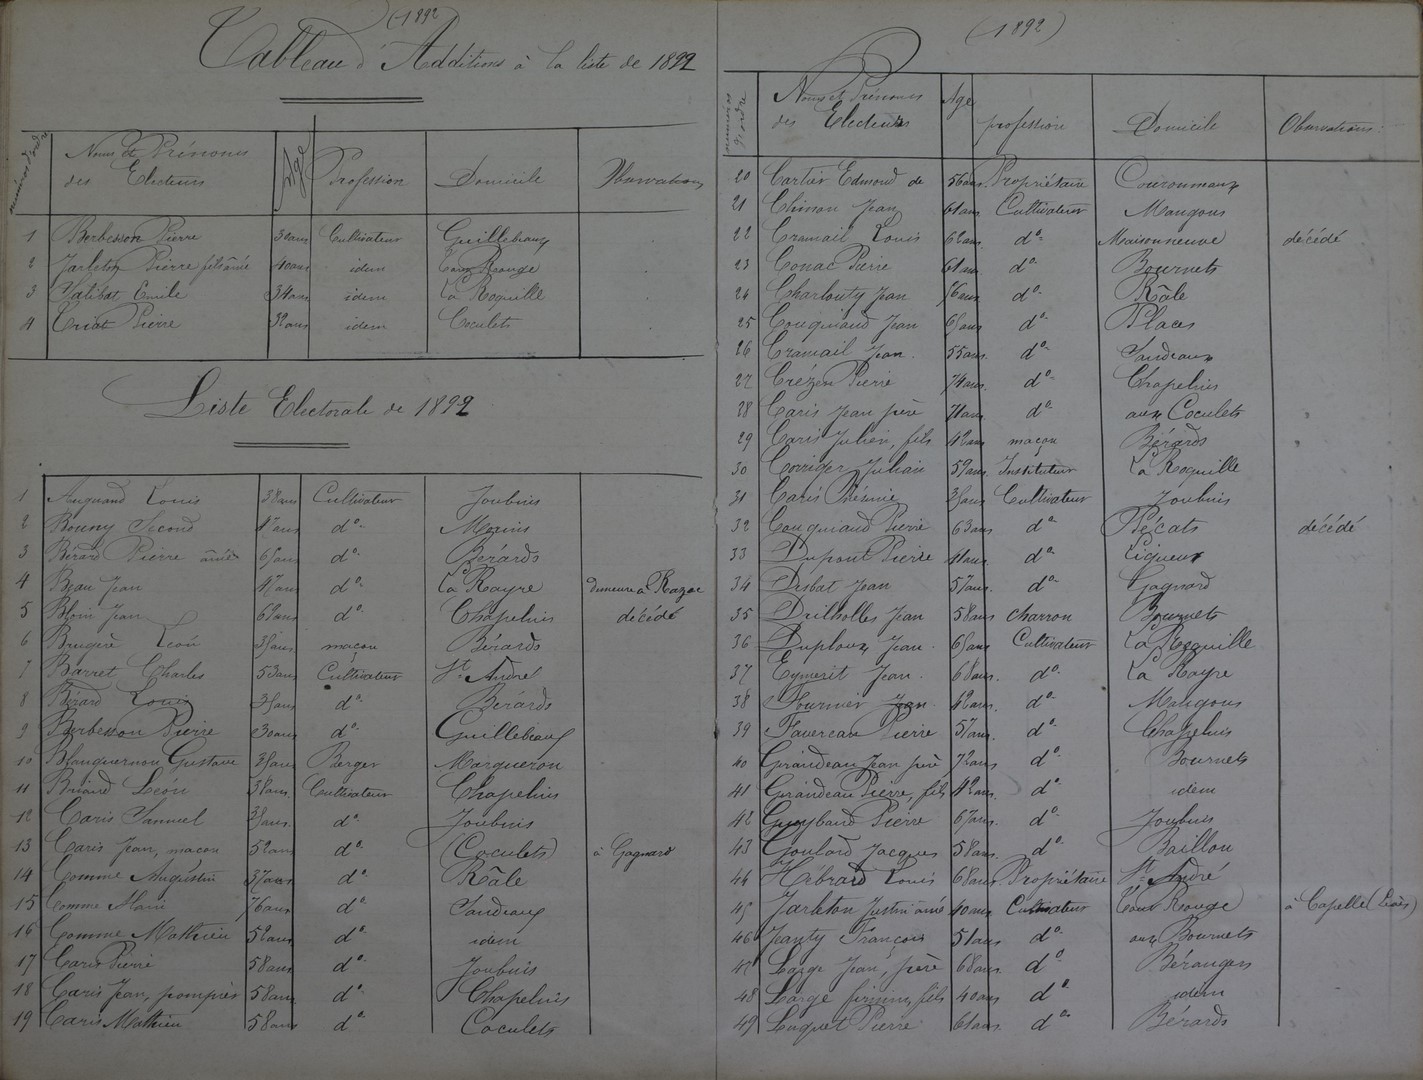 (1892)
Tableau d'Additions à la liste de 1892
numéros d'ordre Noms et Prénoms des Electeurs Age Profession Domicile Observations
1 Berbesson Pierre 30 ans Cultivateur Guillebeaux
2 Jarleton Pierre fils aîné 40 ans idem Tour Rouge
3 Salibat Emile 34 ans idem La Roquille
4 Criat Pierre 32 ans idem Coculets
Liste Electorale de 1892
1 Augnand Louis 38 ans Cultivateur Joubnis
2 Bouny Second 47 ans do
3 Bérard Pierre aîné 65 ans do Bérards
4 Beau Jean 47 ans do La Rayre demeure à Razac
5 Jean 62 ans do Chapelnis décédé
6 Brugère Léon 35 ans maçon Bérards
7 Barret Charles 53 ans Cultivateur St André
8 Bérard Louis 35 ans do Bérards
9 Berbesson Pierre 30 ans do Guillebeaux
10 Blanquernon Gustave 35 ans Berger Margueron
11 Briand Léon 38 ans Cultivateur Chapelnis
12 Caris Samuel 35 ans do Joubnis
13 Caris Jean, maçon 52 ans do Coculets à Gagnard
14 Comme Augustin 37 ans do Râle
15 Comme 76 ans do Jandeaux
16 Comme Mathieu 52 ans do idem
17 Caris Pierre 58 ans do Joubnis
18 Caris Jean, 58 ans do Chapelnis
19 Caris Mathieu 58 ans do Coculets
(1892)
numéros d'ordre Noms et Prénoms des Electeurs Age profession Domicile Observations
20 Cartier Edmond de 56 ans Propriétaire
21 Chinon Jean 61 ans Cultivateur Maugons
22 Cramail Louis 62 ans do Maisonneuve décédé
23 Conac Pierre 61 ans do Bournets
24 Charlouty Jean 56 ans do Râle
25 Couguiaud Jean 65 ans do Places
26 Cramail Jean 55 ans do Jandeaux
27 Crézen Pierre 74 ans do Chapelnis
28 Caris Jean père 71 ans do aux Coculets
29 Caris Julien, fils 42 ans maçon Bérards
30 Corriger Julian 52 ans Instituteur La Roquille
31 Caris 35 ans Cultivateur Joubnis
32 Couguiaud Pierre 63 ans do Pécats décédé
33 Dupont Pierre 41 ans do Ligueux
34 Disbat Jean 57 ans do Gagnard
35 Deilholles Jean 58 ans charron Bournets
36 Duplouy Jean 65 ans Cultivateur La Roquille
37 Eymerit Jean 68 ans do La Rayre
38 Fournier Jean 42 ans do Maugons
39 Favereau Pierre 57 ans do Chapelnis
40 Girandeau Jean père 72 ans do Bournets
41 Girandeau Pierre, fils 42 ans do idem
42 Gueybaud Pierre 67 ans do Joubnis
43 Goulard Jacques 58 ans do Baillou
44 Hébrard Louis 68 ans Propriétaire St André
45 Jarleton Justin aîné 40 ans Cultivateur Tour Rouge à Capelle
46 Jeanty François 51 ans do aux Bournets
47 Large Jean, père 68 ans do Bérangers
48 Large firmin, fils 40 ans do idem
49 Luquet Pierre 61 ans do Bérards